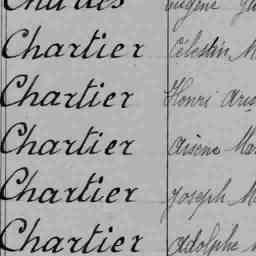 Eugène
Chartier Célestin
Chartier Henri
Chartier Arsène
Chartier Joseph
Chartier Adolphe